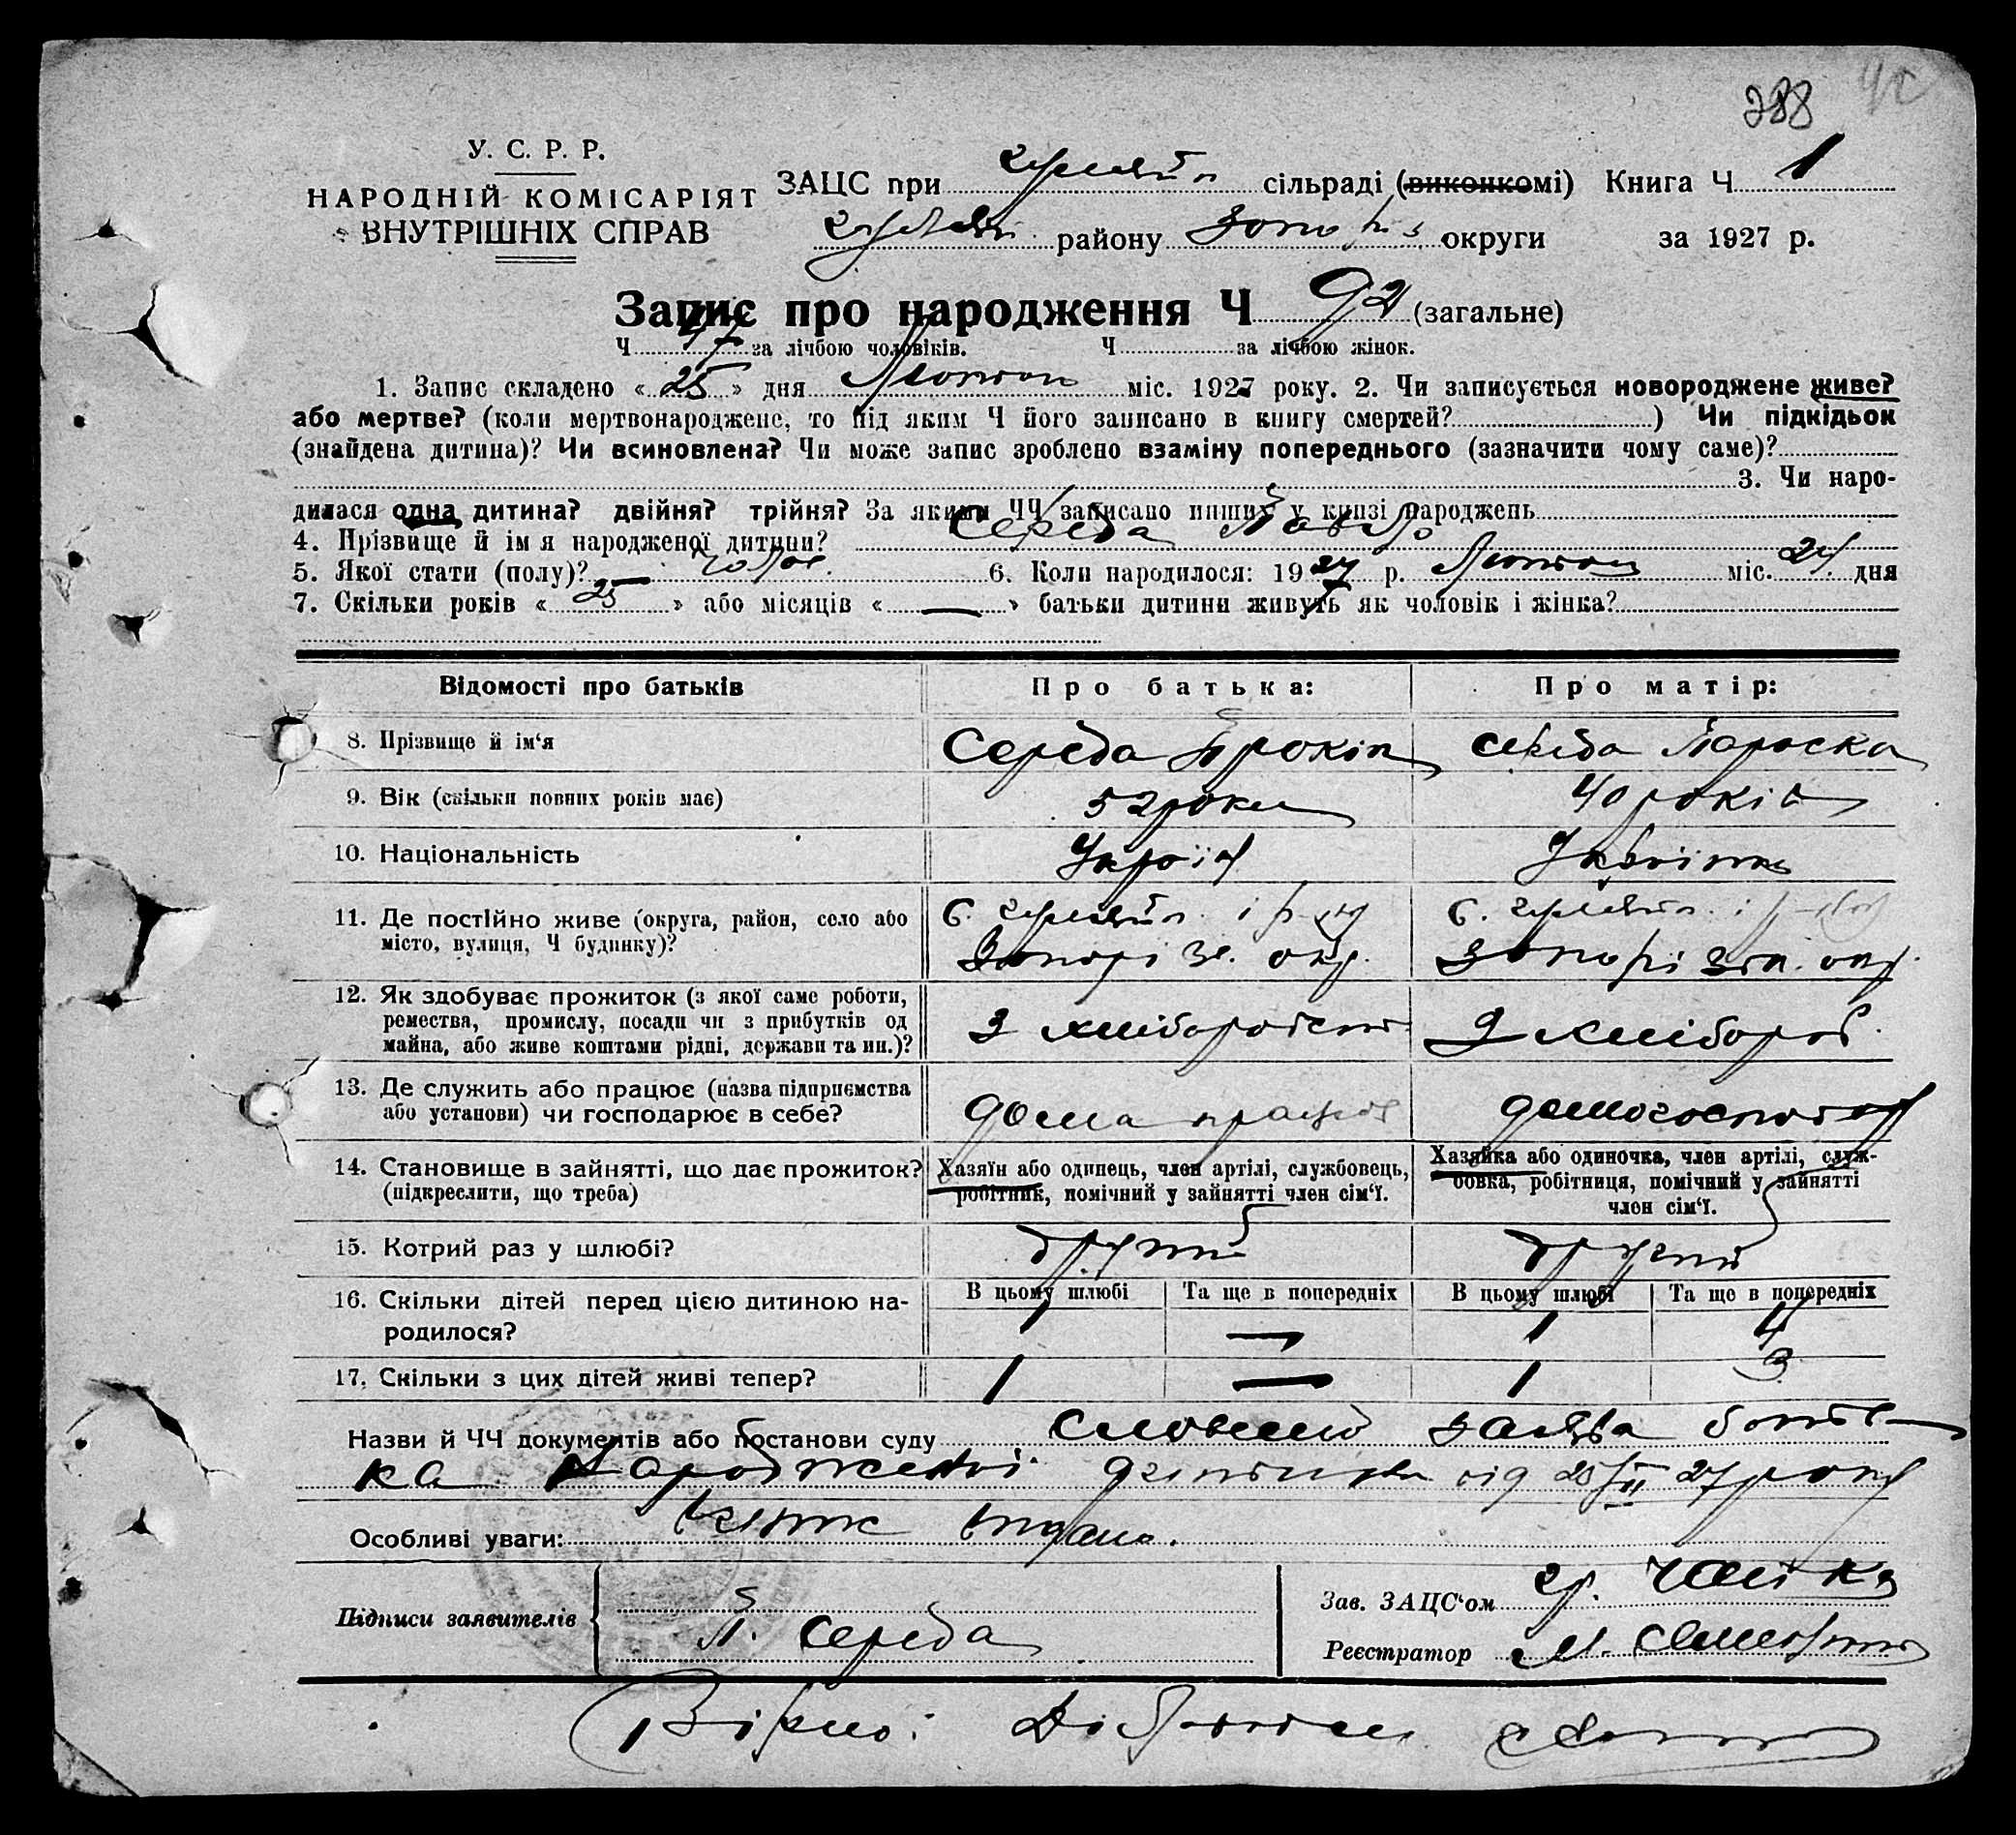 288
У. С. Р. Р.
НАРОДНІЙ КОМІСАРІЯТ
ВНУТРІШНІХ СПРАВ
ЗАЦС при сільраді (виконкомі) Книга Ч 1
району округи за 1927 р.
Запис про народження Ч 92 (загальне)
Ч 47 за лічбою чоловіків. Ч за лічбою жінок.
1. Запис складено « 25 » дня Лютого міс. 1927 року. 2. Чи записується новороджене живе?
або мертве? (коли мертвонароджене, то під яким Ч його записано в книгу смертей? ) Чи підкідьок
(знайдена дитина)? Чи всиновлена? Чи може запис зроблено взаміну попереднього (зазначити чому саме)?
3. Чи наро-
дилася одна дитина? двійня? трійня? За якими ЧЧ записано инших у книзі народжень
4. Прізвище й ім я народженої дитини? Середа Павло
5. Якої стати (полу)? чолов. 6. Коли народилося: 1927 р. Лютого міс. 24 дня
7. Скільки років « 25 » або місяців « — » батьки дитини живуть як чоловік і жінка?
Відомості про батьків Про батька: Про матір:
8. Прізвище й ім‘я Середа Прокіп Середа Параска
9. Вік (скільки повних років має) 52 роки 40 років
10. Національність Україн Українка
11. Де постійно живе (округа, район, село або
місто, вулиця, Ч будинку)?
с.
Запоріз. окр.
с.
Запорізьк. окр.
12. Як здобуває прожиток (з якої саме роботи,
ремества, промислу, посади чи з прибутків од
майна, або живе коштами рідні, держави та ин.)?
З хліборобств
З хлібороб.
13. Де служить або працює (назва підприємства
або установи) чи господарює в себе?
дома працює
домогосподар
14. Становище в зайнятті, що дає прожиток?
(підкреслити, що треба)
Хазяїн або одинець, член артілі, службовець,
робітник, помічний у зайнятті член сім‘ї.
Хазяйка або одиночка, член артілі, служ-
бовка, робітниця, помічний у зайнятті
член сім‘ї.
15. Котрий раз у шлюбі? другий другий
16. Скільки дітей перед цією дитиною на-
родилося?
В цьому шлюбі Та ще в попередніх В цьому шлюбі Та ще в попередніх
1 — 1 4
17. Скільки з цих дітей живі тепер? 1 — 1 3
Назви й ЧЧ документів або постанови суду Словесно заява батьь-
ка Народженні від 25/II 27 року
Особливі уваги: Витяг видано.
Підписи заявителів П. Середа
Зав. ЗАЦС‘ом гр. Чайка
Реєстратор М.
Вірно: